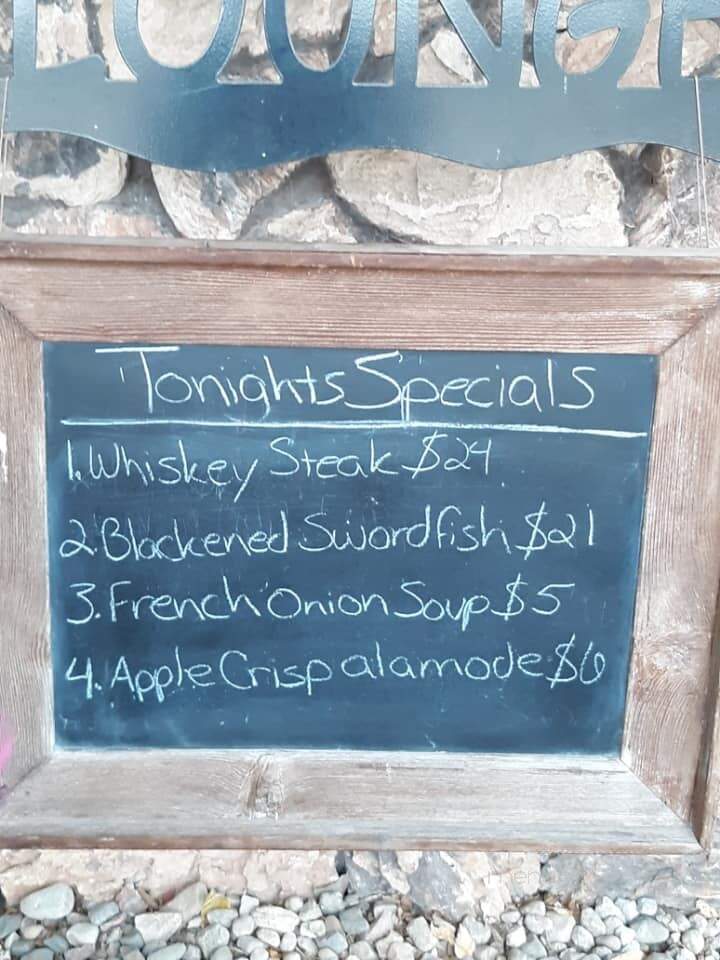 LOUNGE
Tonights Specials
1. Whiskey Steak $24
2. Blackened Swordfish $21
3. French Onion Soup $5
4. Apple Crisp alamode $6